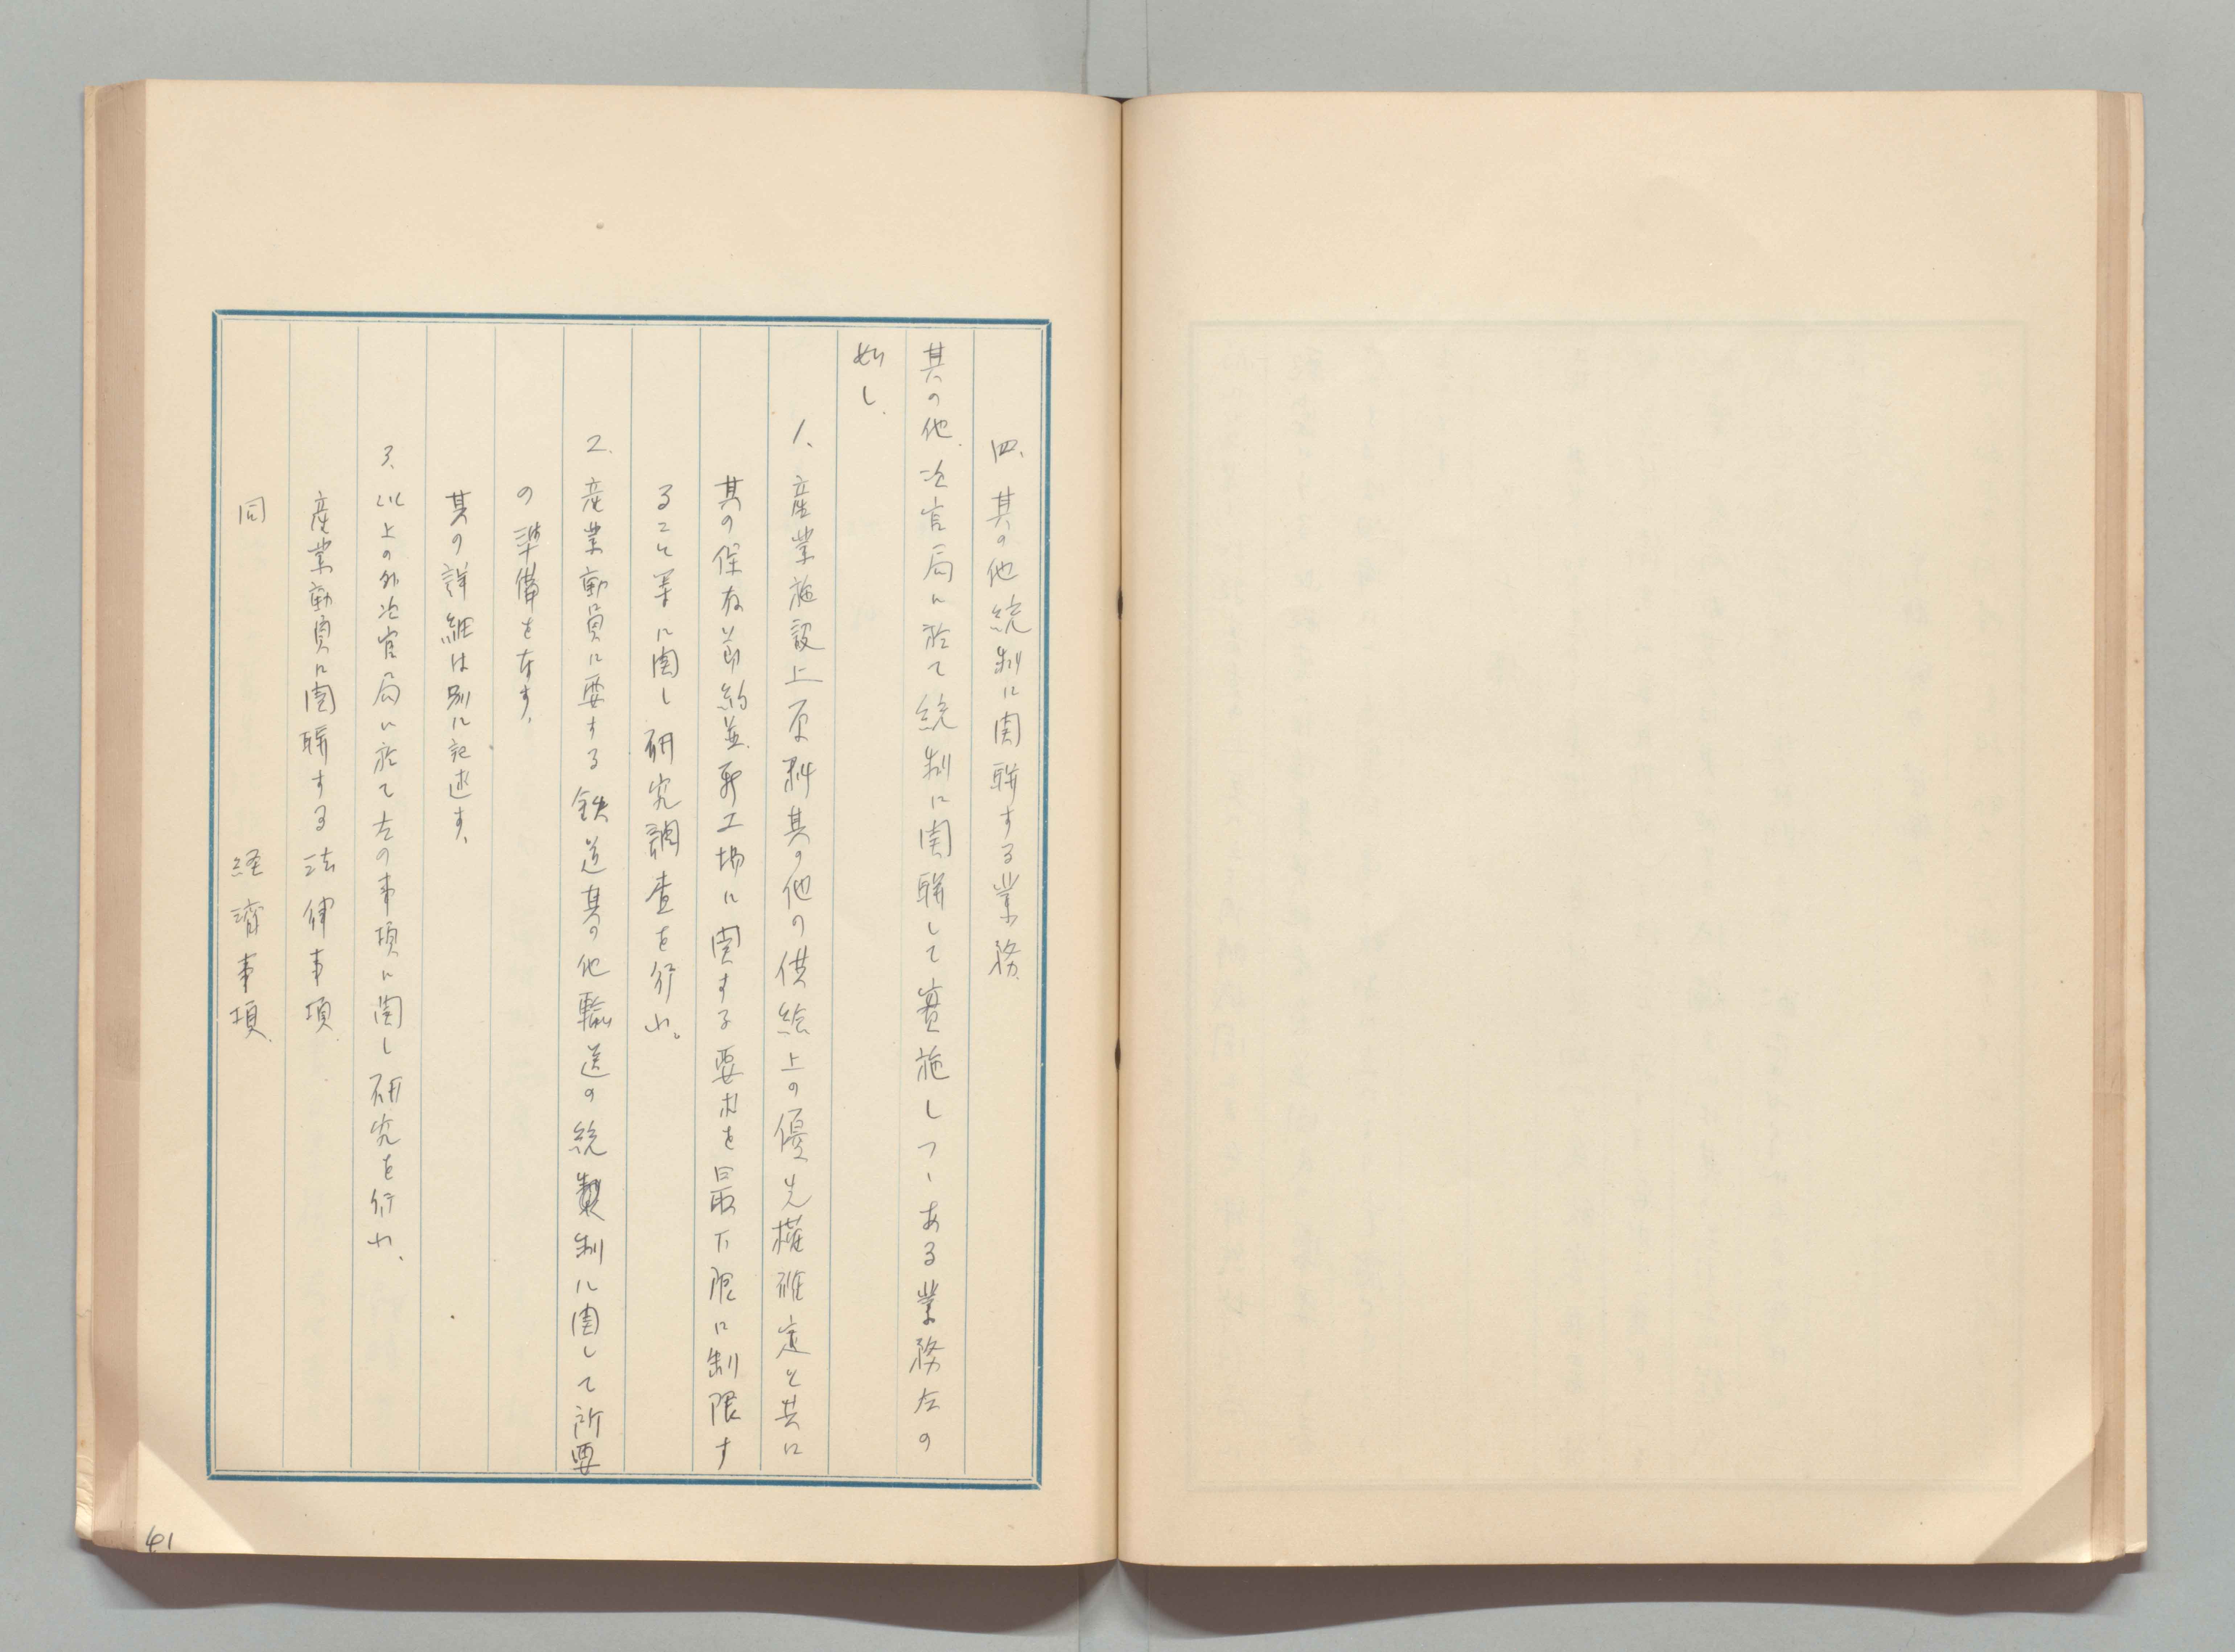 四、其の他統制に関聯する業務
其の他、治官局に於て統制に関聯して實施しつゝある業務左の
如し、
1、産業施設上原料其の他の供給上の優先権確定と共に
其の保存節約並、軍工場に関する要求を最下限に制限す
ること等に関し研究調査を行ふ。
2、産業動員に要する鉄道其の他輸送の統制に関して所要
の準備をなす、
其の詳細は別に記述す、
3、以上の外治官局に於て左の事項に関し研究を行ふ、
産業動員に関聯する法律事項
同 経済事項
41